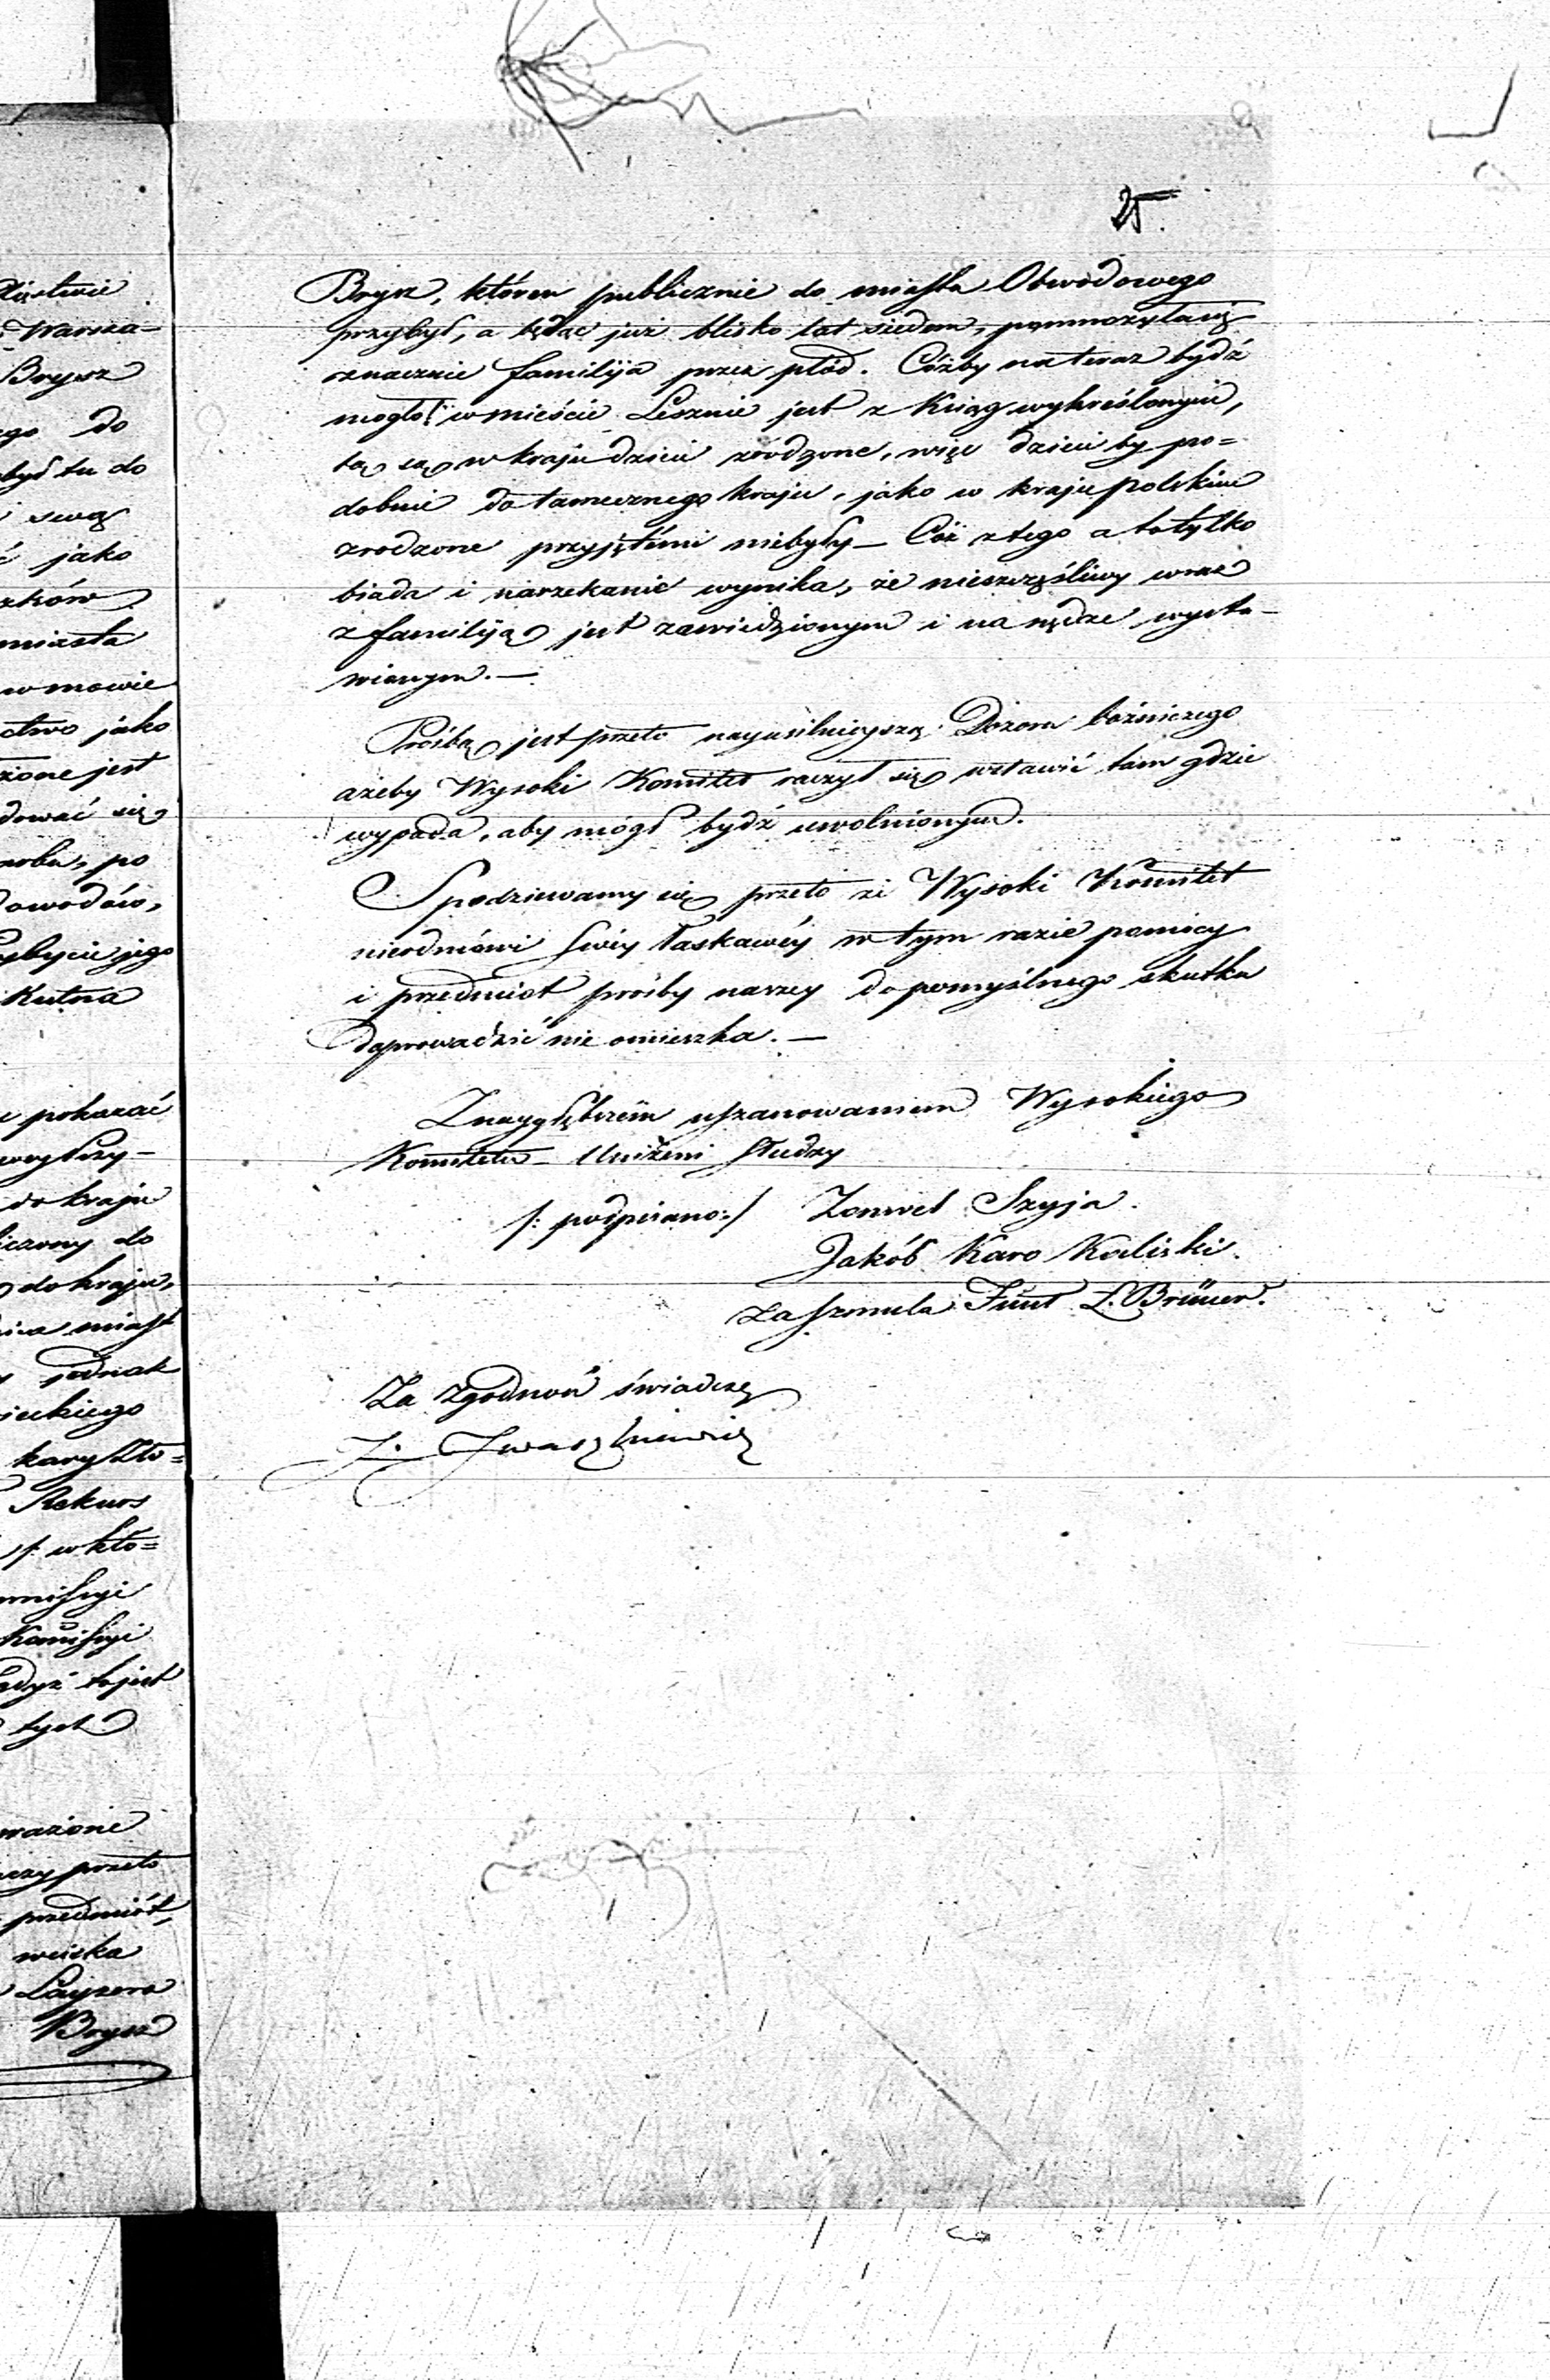 25.
Brysz, któren publicznie do miasta Obwodowego
przybył, a będąc już blisko lat siedem, pomnożyła się
znacznie familija przez płód. Cóżby na teraz bydź
mogło! w mieście Lesznie jest z Ksiąg wykreślonym,
tu są w kraju dzieci zrodzone, więc dzieci by po=
dobnie do tamecznego kraju, jako w kraju polskim
zrodzone przyjętémi niebyły_ Cóż z tego a to tylko
biada i narzekanie wynika, że nieszczęśliwy wraz
z familiją jest zawiedzionym i na nędze wysta-
wionym._
Prośbą jest przeto nayusilnieyszą Dozoru bóżniczego
ażeby Wysoki Komitet raczył się wstawić tam gdzie
wypada, aby mógł bydź uwolnionym.
Spodziewamy się przeto że Wysoki Komitet
nieodmówi swéy łaskawéy w tym razie pomocy
i przedmiot prośby naszey do pomyślnego skutku
doprowadzić nie omieszka._
Z naygłębszém uszanowaniem Wysokiego
Komitetu_ Uniżeni słudzy
/: podpisano:/ Zonwel Szyja.
Jakób Karo Kaliski.
za Szmula Funt L. Brüner.
Za Zgodność świadczę
J. Iwaszkiewicz
Warsza-
Brysz
ego do
był tu do
swą
jako
miasta
w mowie
ctwo jako
zione jest
dować się
po
dowodów,
ybycie jego
Kutna
pokazać
do kraju
iczony do
do kraju,
miast
jednak
ieckiego
kary Zło=
Rekurs
/: w któ=
Komissyi
gdyż to jest
tych
przeto
przedmiót
Layzera
Brysz